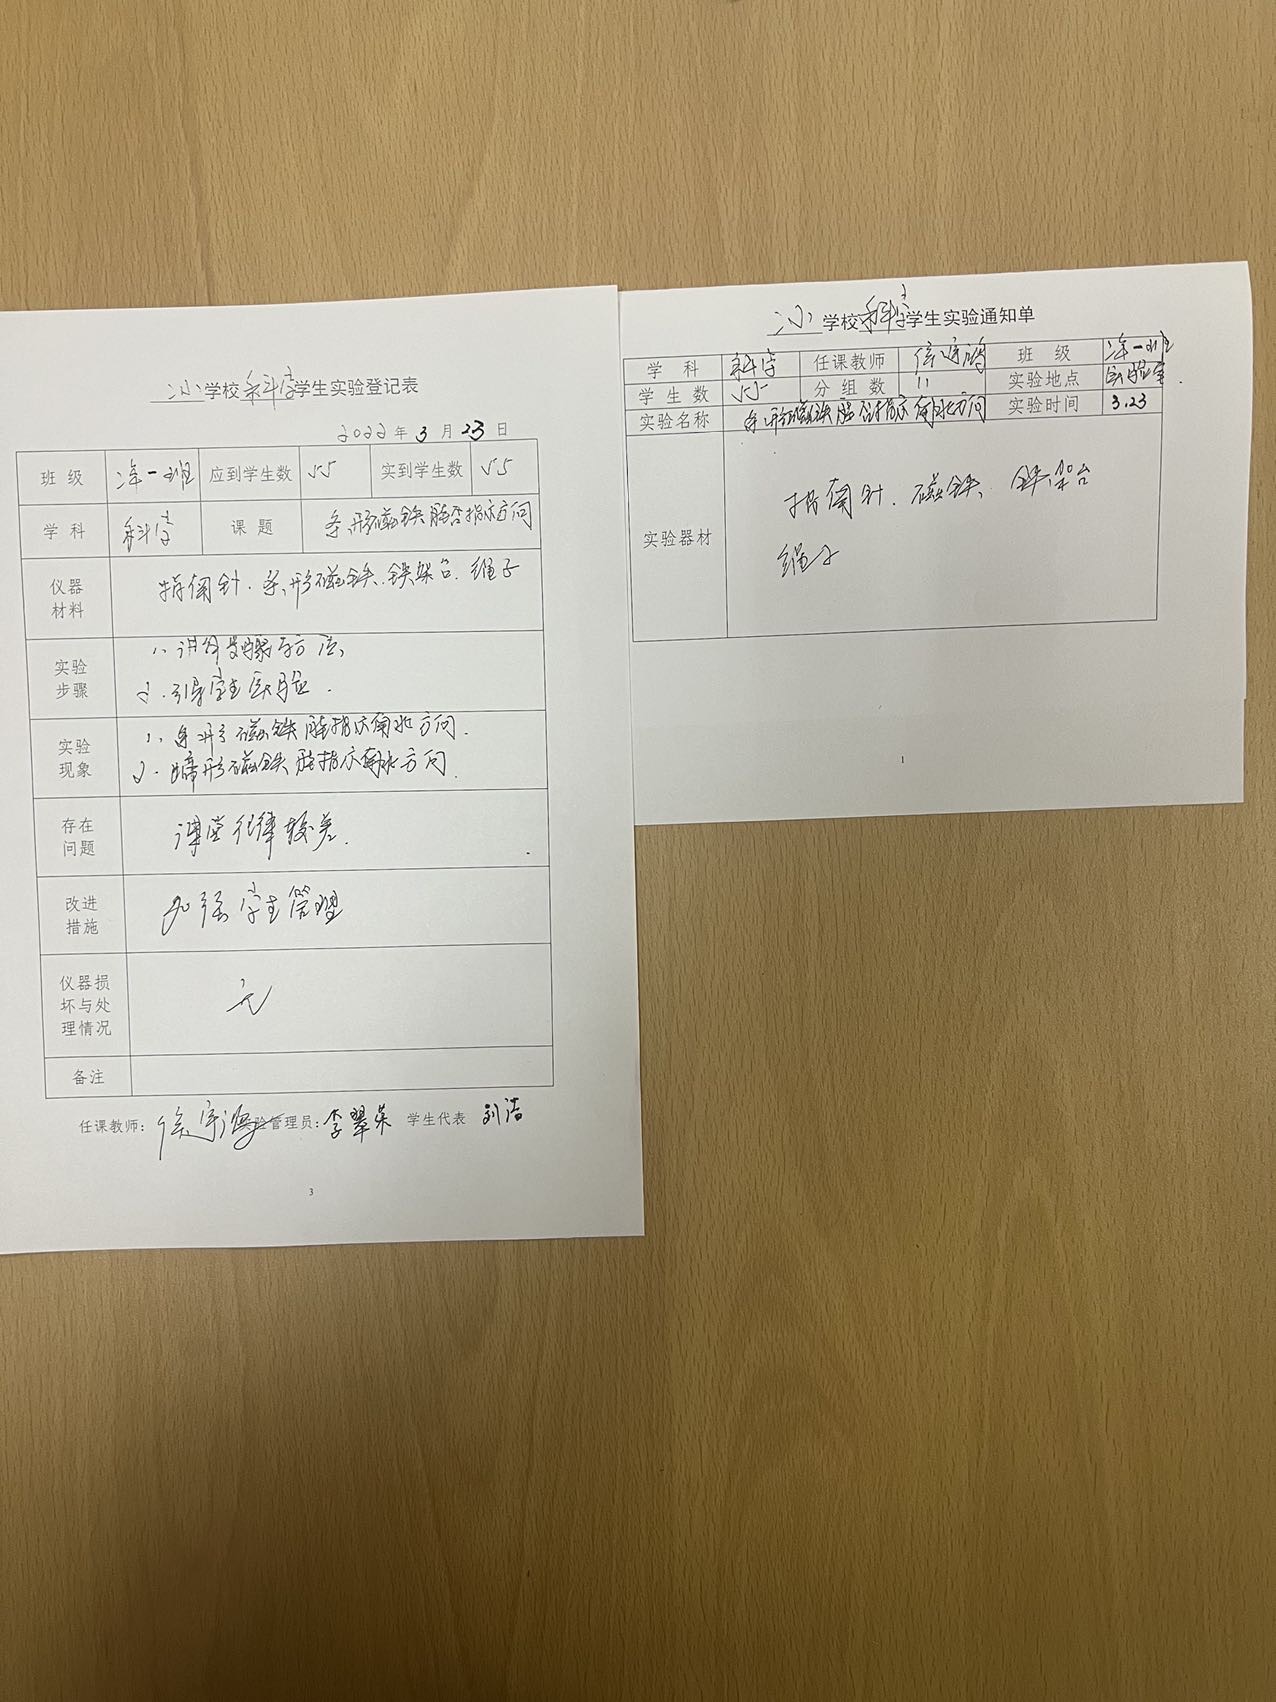 小学校科学学生实验登记表
2022年3月23日
班级 年一班 应到学生数 55 实到学生数 55
学科 科学 课题 条形磁铁能否指示方向
仪器材料 指南针、条形磁铁、铁架台、绳子
实验步骤 1、讲解步骤与方法、
2、引导学生实验.
实验现象 1、条形磁铁能指示南北方向.
2、蹄形磁铁能指示南北方向.
存在问题 课堂纪律较差.
改进措施 加强学生管理
仪器损坏与处理情况 无
备注
任课教师: 管理员:李翠英 学生代表 刘洁
3
小学校科学学生实验通知单
学科 科学 任课教师 班级 年一班
学生数 55 分组数 11 实验地点 实验室.
实验名称 条形磁铁能否指示南北方向 实验时间 3.23
实验器材 指南针、磁铁、铁架台
绳子
1